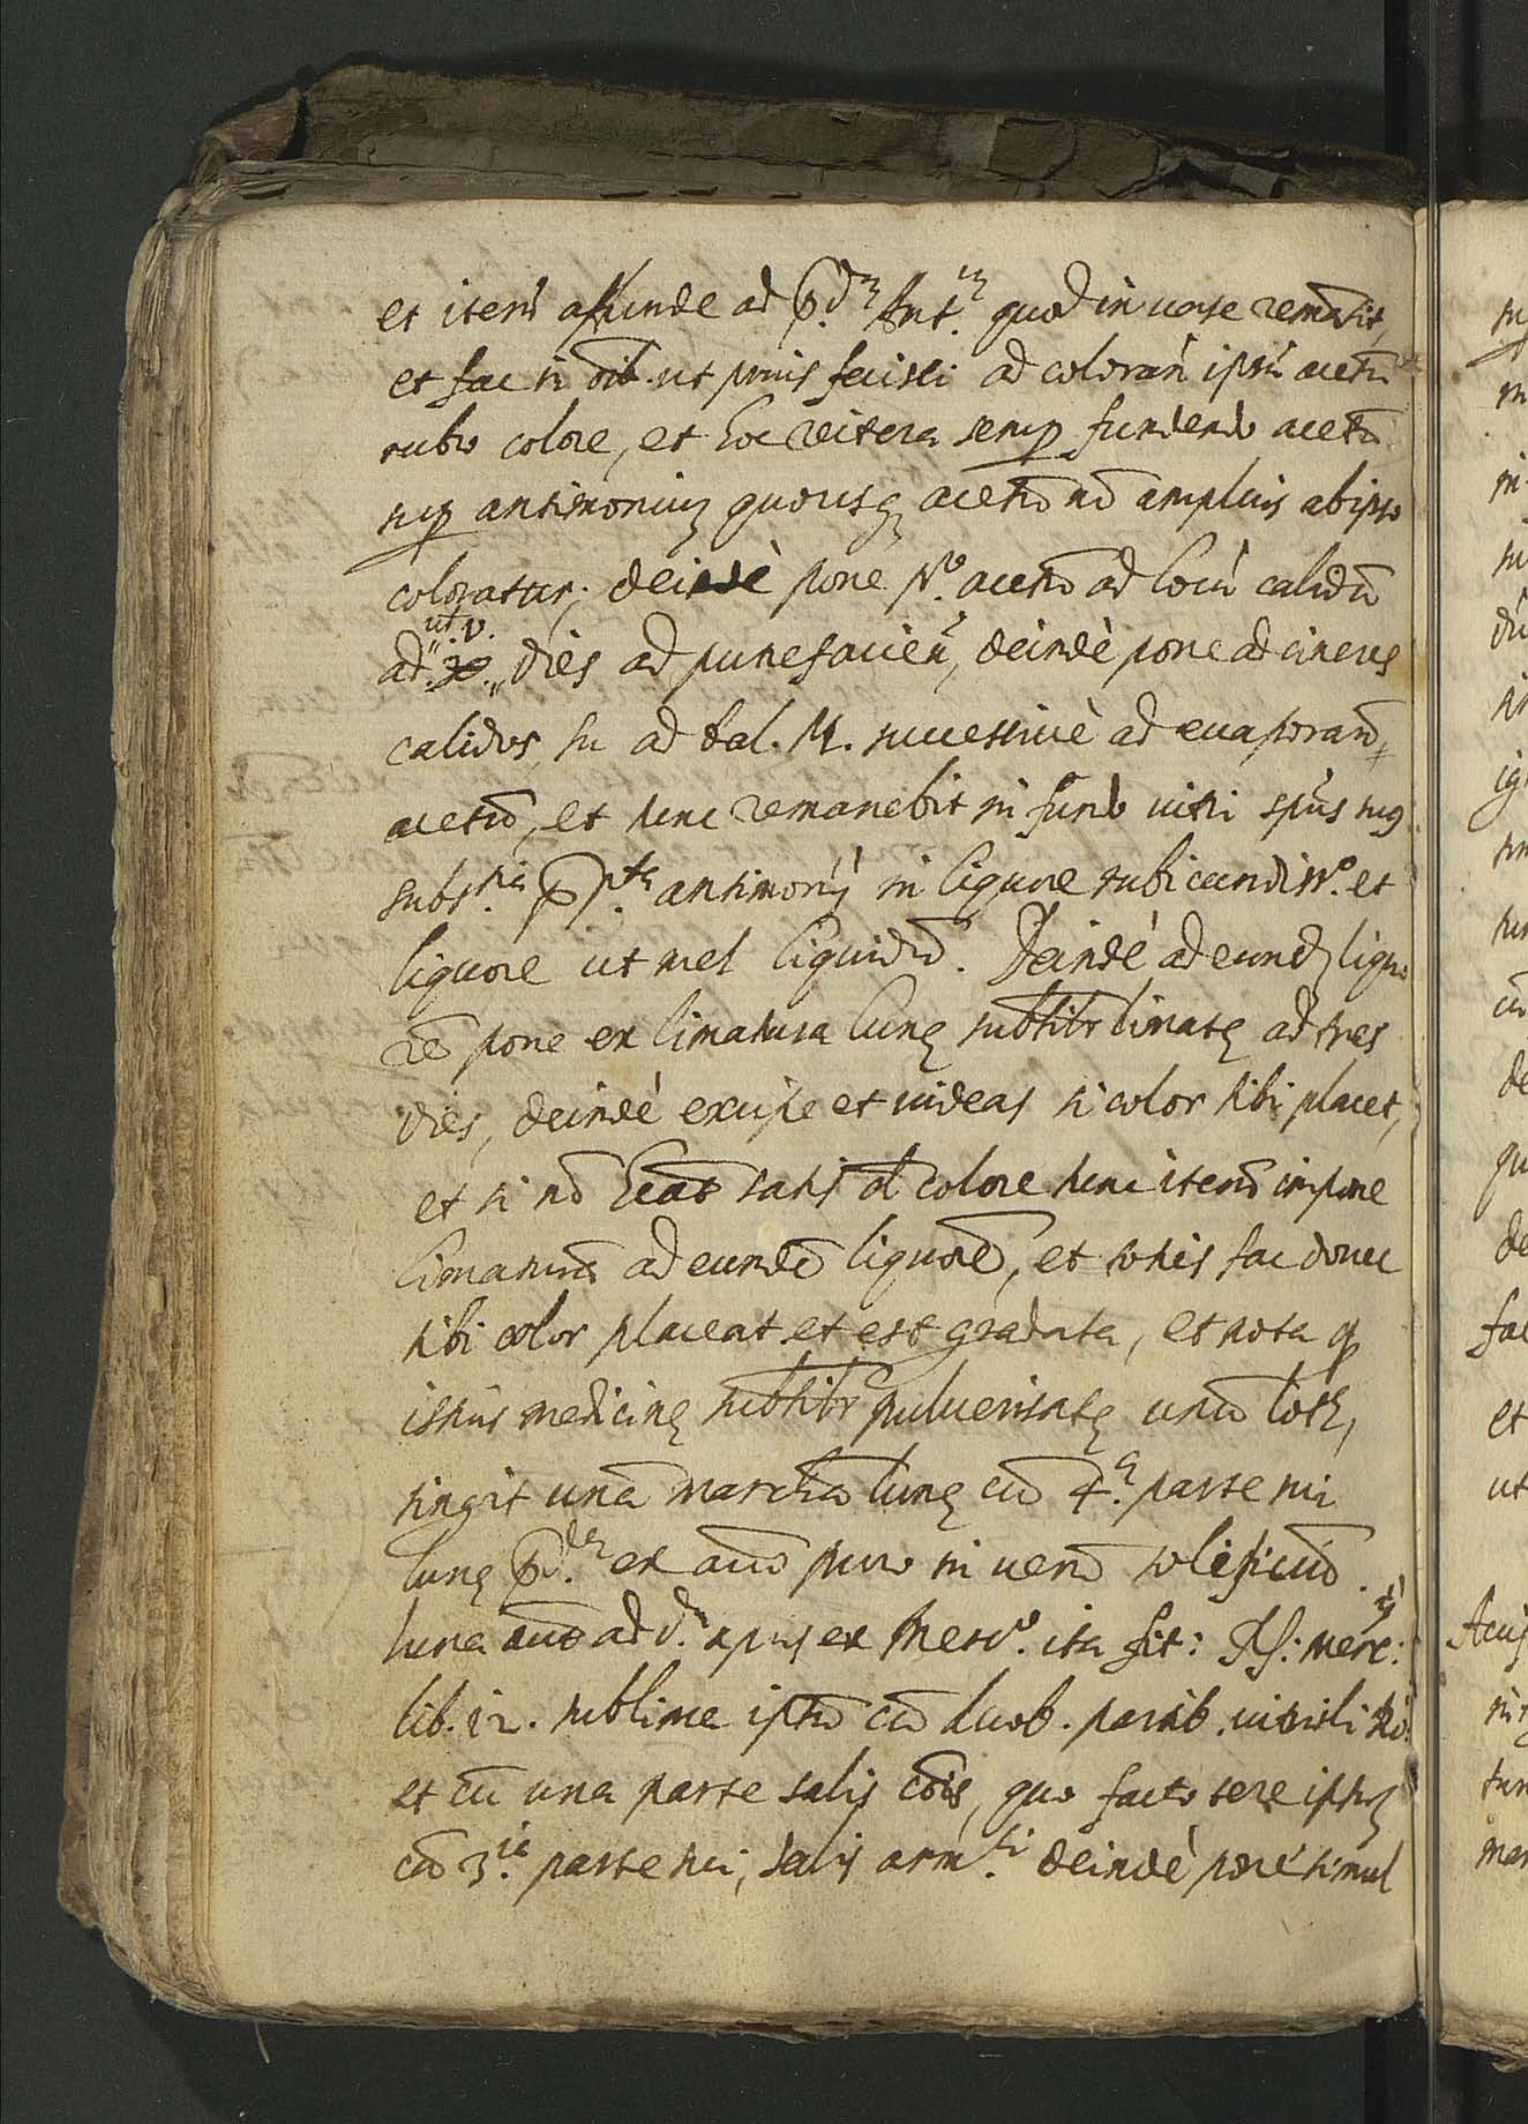 et iterũ affunde ad p.dm Ant.m quod in uase remãsit,
et fac in õib. ut prius fecisti ad colorañ ipsũ acetũ
rubro colore, et hoc reitera semp fundendo acetũ
sup antimoniuz quousqз acetũ nõ amplius ab ipso
coloratur; deindè pone p.o acetũ ad locũ calidũ
ad ut. v. dies ad putrefacien, deindè pone ad cineres
calidos, su ad bal. M. successiuè ad euaporand
acetũ, et tunc remanebit in fundo uitri spũs siue
subst.tia antimonij in liquore rubicundiss.o et
liquore ut mel liquidũ. Deindé ad eundз liquo
rẽ pone ex limatura lunę subtilr limatę ad tres
dies, deindé excipe et uideas si color tibi placet,
et si nõ heat satis d colore tunc iterũ impone
limaturã ad eundẽ liquorẽ, et toties fac donec
tibi color placeat et est gradata, et nota q
istius medicinę subtilr puluerisatę unũ loth,
tingit unã marchã lunę cũ 4.a parte sui
lunę p.dę ex auro puro in uerũ solificũ.
luna aut ad d.m opus ex Merc.o ita fit: Rs: merc:
lib. i2. sublima ipsũ cũ duob. partib. uitrioli Ro:
et cũ una parte salis cõis, quo facto tere ipsuз
cũ 3.ia parte sui, salis arm.ci deindè pone simul
in
m
in
dũ
in
ig
cũ
de
qu
de
fac
et
ut
tun
mar